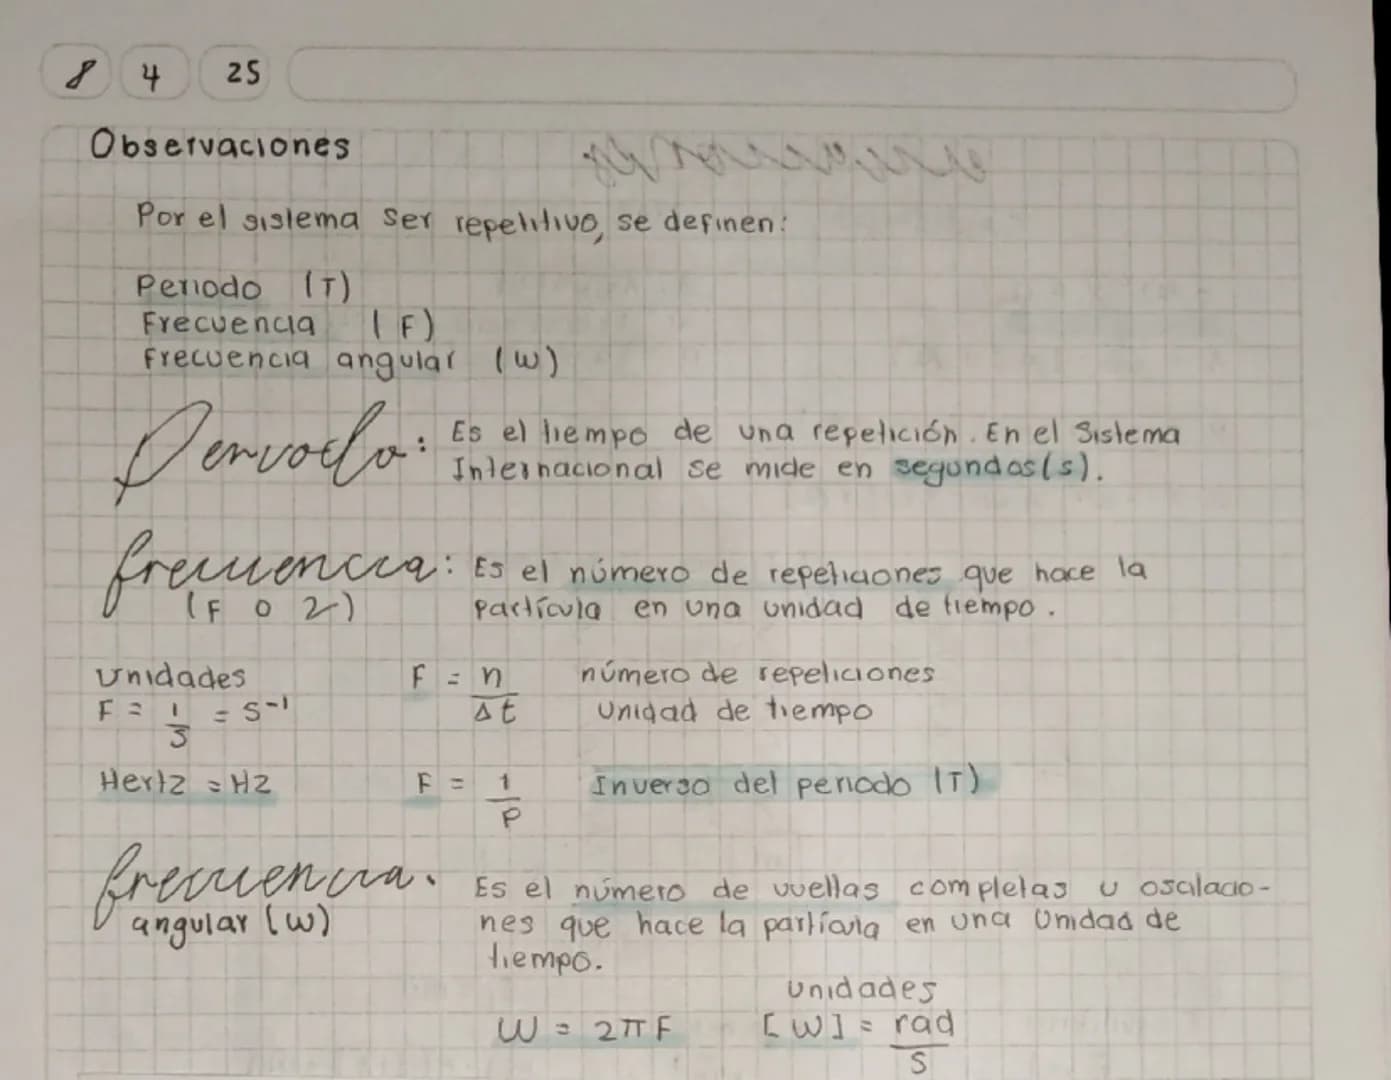 8 4 25
Observaciones
Por el sistema ser repetitivo, se definen:
Periodo (T)
Frecuencia (F)
Frecuencia angular (W)
Periodo: Es el tiempo de una repetición. En el Sistema
Internacional se mide en segundos(s).
frecuencia: Es el número de repeticiones que hace la
(F o 2) partícula en una unidad de tiempo.
Unidades F = n/Δt número de repeticiones
F = 1/s = s-1 Unidad de tiempo
Hertz = Hz F = 1/P Inverso del periodo (T)
frecuencia. Es el número de vuellas completas u oscilacio-
angular (W) nes que hace la partícula en una Unidad de
tiempo.
unidades
W = 2πF [W] = rad/s